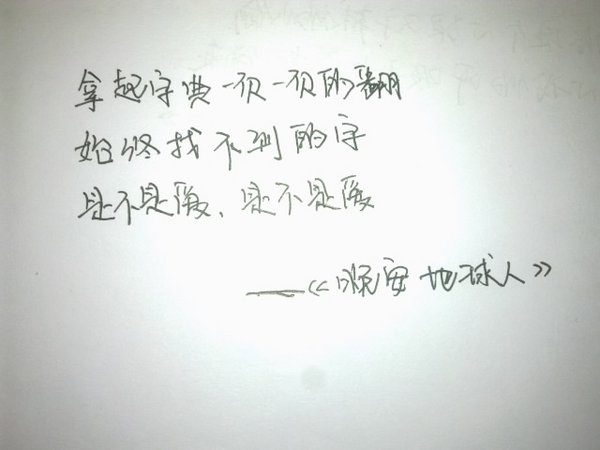 拿起字典一页一页的翻
始终找不到的字
是不是、是不是
——《晚安地球人》